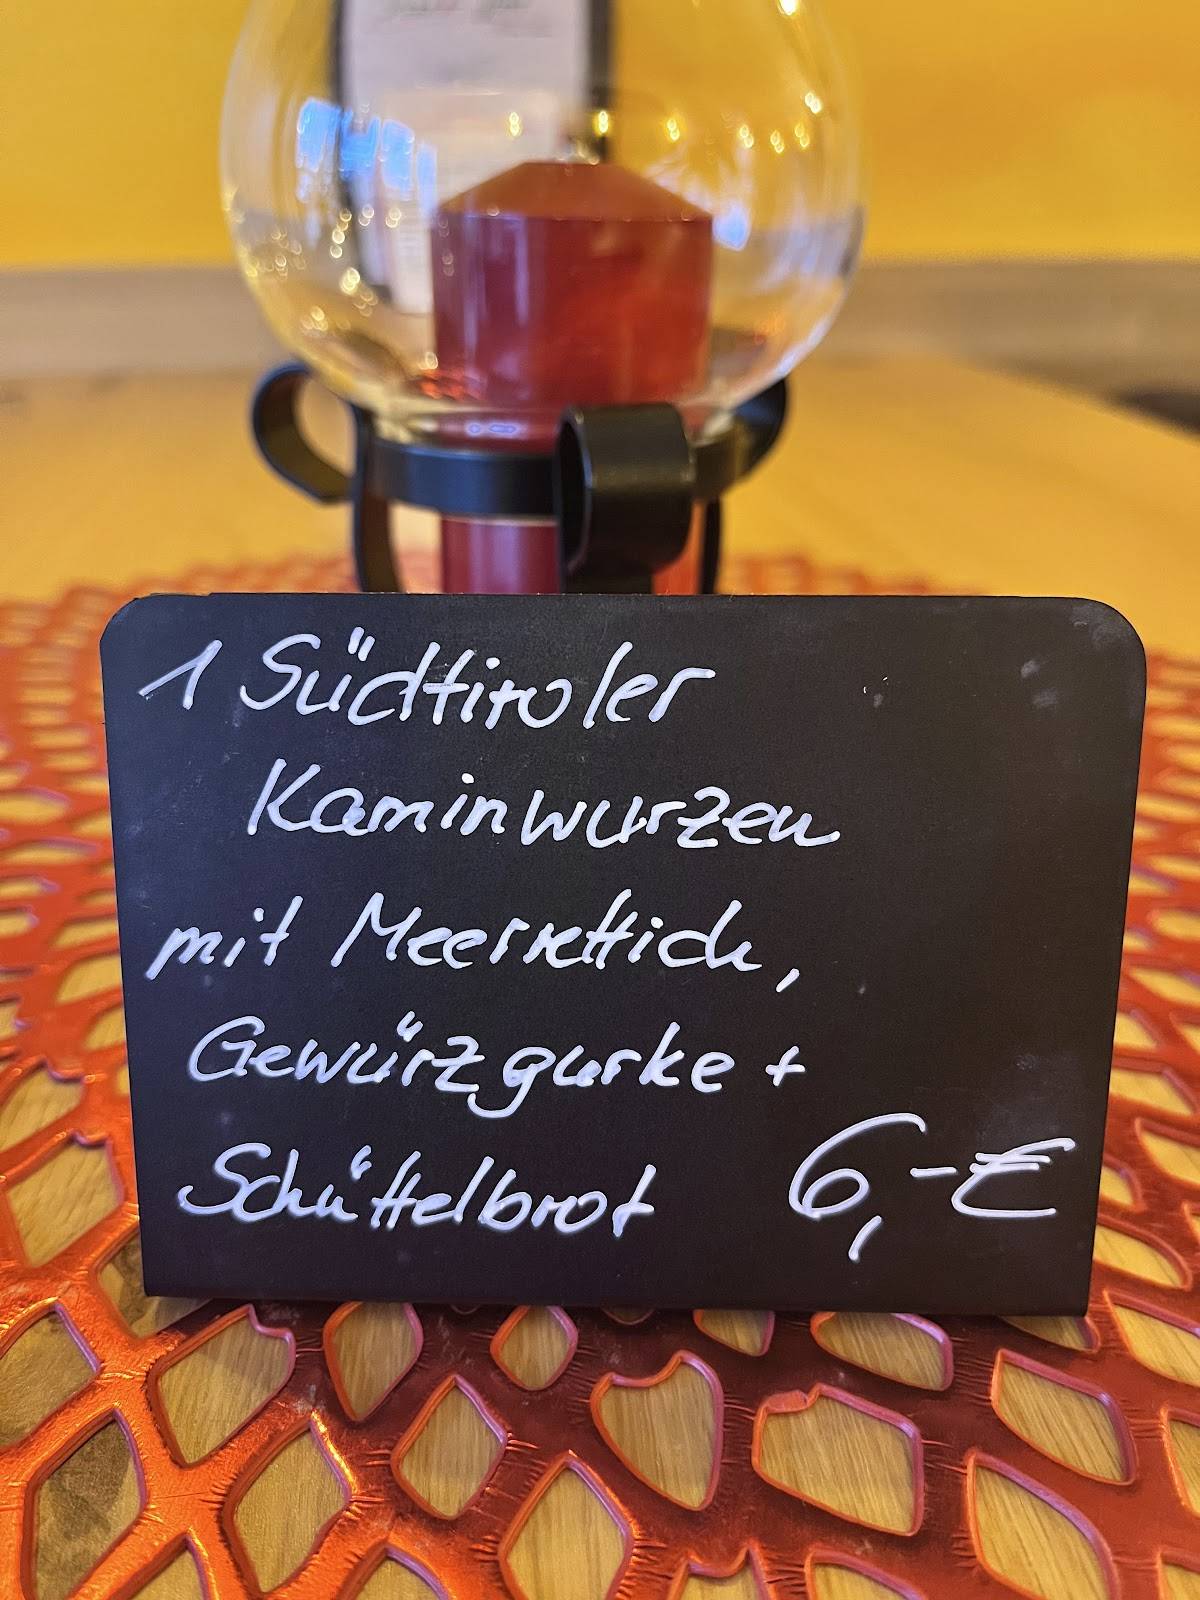 1 Südtiroler
Kaminwurzen
mit Meerrettich,
Gewürzgurke +
Schüttelbrot 6,-€